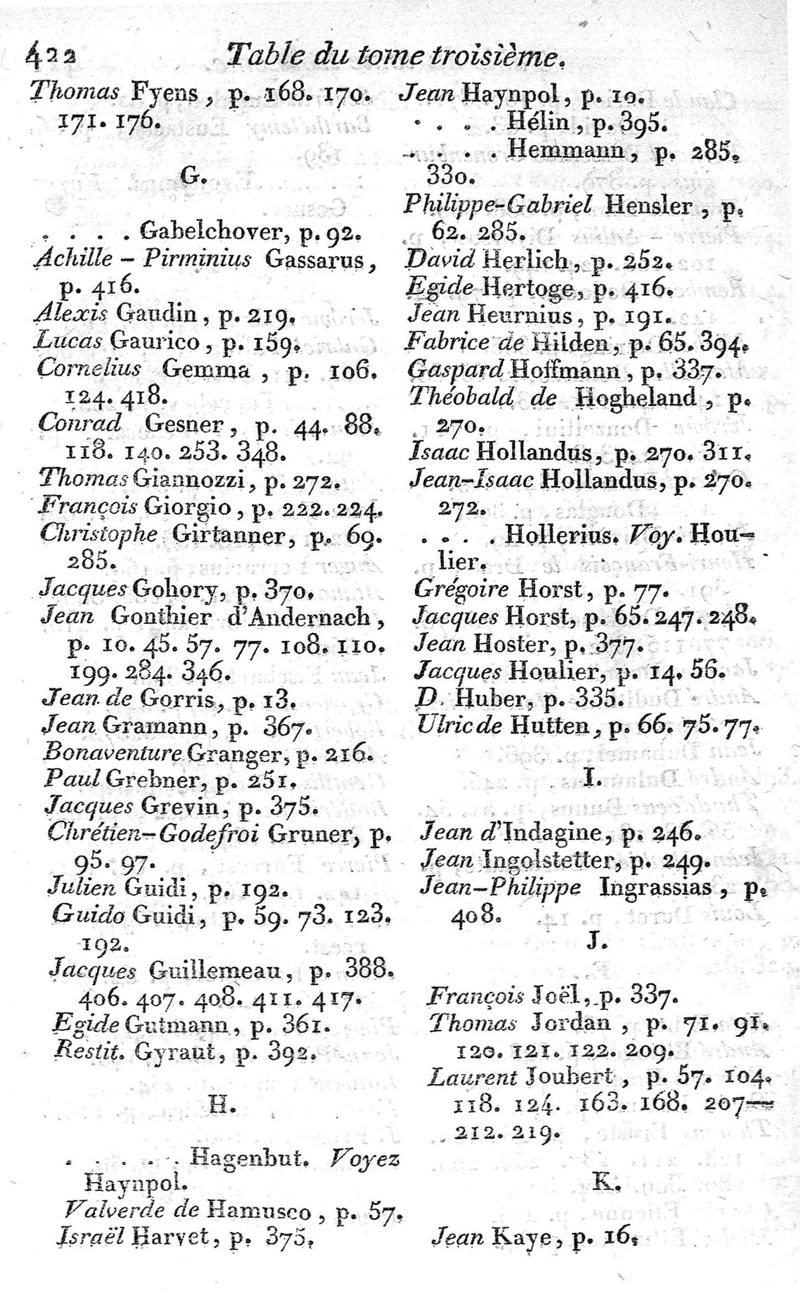 422 Table du tome troisième.
Thomas Fyens, p. 168. 170.
171. 176.
G.
. . . . Gabelchover, p. 92.
Achille - Pirminius Gassarus,
p. 416.
Alexis Gaudin, p. 219.
Lucas Gaurico, p. 159.
Cornelius Gemma, p. 106.
124. 418.
Conrad Gesner, p. 44. 88.
118. 140. 253. 348.
Thomas Giannozzi, p. 272.
François Giorgio, p. 222. 224.
Christophe Girtanner, p. 69.
285.
Jacques Gohory, p. 370.
Jean Gonthier d'Andernach,
p. 10. 45. 57. 77. 108. 110.
199. 284. 346.
Jean de Gorris, p. 13.
Jean Gramann, p. 367.
Bonaventure Granger, p. 216.
Paul Grebner, p. 251.
Jacques Grevin, p. 375.
Chrétien-Godefroi Gruner, p.
95. 97.
Julien Guidi, p. 192.
Guido Guidi, p. 59. 73. 123.
192.
Jacques Guillemeau, p. 388.
406. 407. 408. 411. 417.
Egide Gutmann, p. 361.
Restit. Gyraut, p. 392.
H.
. . . . . Hagenbut. Voyez
Haynpol.
Valverde de Hamusco, p. 57.
Israël Harvet, p. 375.
Jean Haynpol, p. 10.
. . . . Hélin, p. 395.
. . . . Hemmann, p. 285.
330.
Philippe-Gabriel Hensler, p.
62. 285.
David Herlich, p. 252.
Egide Hertoge, p. 416.
Jean Heurnius, p. 191.
Fabrice de Hilden, p. 65. 394.
Gaspard Hoffmann, p. 337.
Théobald de Hogheland, p.
270.
Isaac Hollandus, p. 270. 311.
Jean-Isaac Hollandus, p. 270.
272.
. . . . Hollerius. Voy. Hou-
lier.
Grégoire Horst, p. 77.
Jacques Horst, p. 65. 247. 248.
Jean Hoster, p. 377.
Jacques Houlier, p. 14. 56.
D. Huber, p. 335.
Ulric de Hutten, p. 66. 75. 77.
I.
Jean d'Indagine, p. 246.
Jean Ingolstetter, p. 249.
Jean-Philippe Ingrassias, p.
408.
J.
François Joël, p. 337.
Thomas Jordan, p. 71. 91.
120. 121. 122. 209.
Laurent Joubert, p. 57. 104.
118. 124. 163. 168. 207—
212. 219.
K.
Jean Kaye, p. 16.